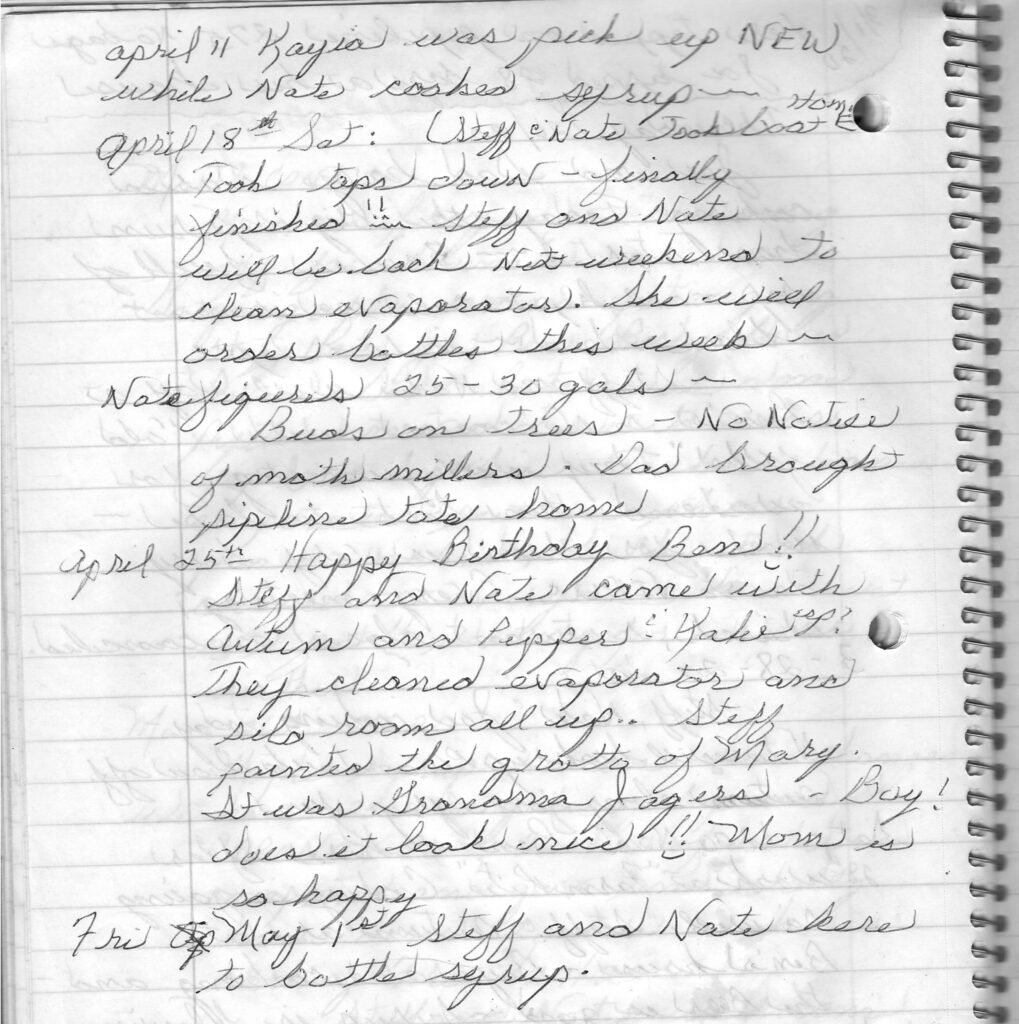 april 11 Kayia was pick up NEW
while Nate cooked syrup ~
April 18th Sat: (Steff & Nate Took boat Home
Took taps down - finally
finished !! Steff and Nate
will be back Next weekend to
clean evaporator. She will
order bottles this week ~
Nate figures 25-30 gals ~
Buds on trees - No Notice
of moth millers. Dad brought
pipeline tote home
April 25th Happy Birthday Ben!!
Steff and Nate came with
Autum and Pepper & Katie
They cleaned evaporator and
silo room all up.. Steff
painted the grotto of Mary.
It was Grandma Jagers - Boy!
does it look nice !! Mom is
so happy
Fri May 1st Steff and Nate here
to bottle syrup.